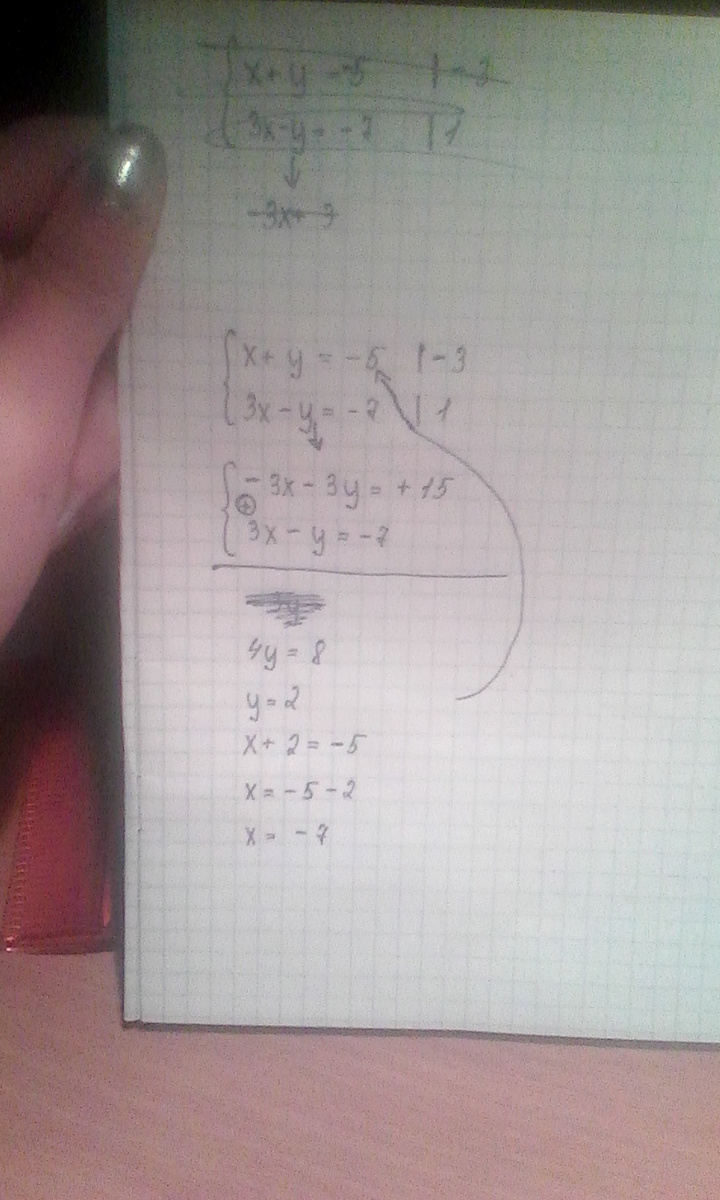 x + y = -5 | -3
3x - y = -7 | 1
-3x +3
x + y = -5 | -3
3x - y = -7 | 1
-3x - 3y = +15
⊕
3x - y = -7
4y = 8
y = 2
x + 2 = -5
x = -5 - 2
x = -7